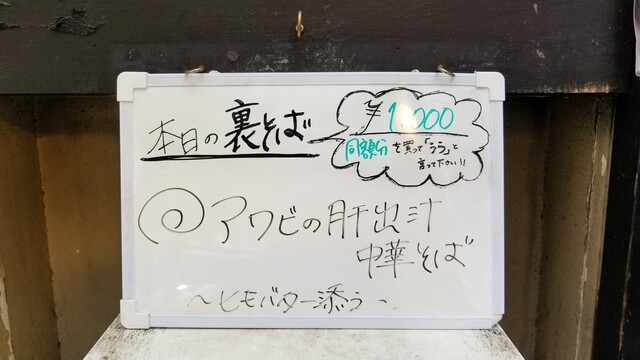 本日の裏そば
¥1,000
同額分を買って「うら」と
言って下さい!!
アワビの肝出汁
中華そば
〜ヒモバター添え〜